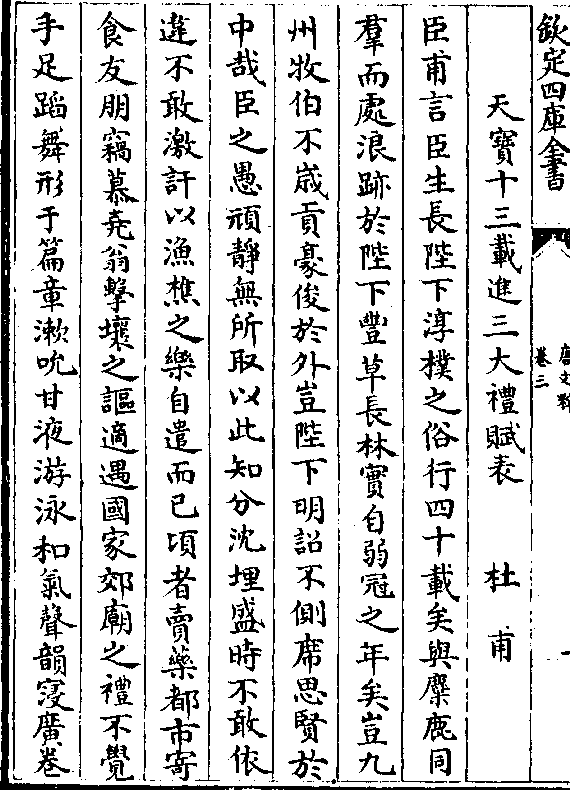 欽定四庫全書
唐文粹
卷三
天寶十三載進三大禮賦表　杜甫
臣甫言臣生長陛下淳樸之俗行四十載矣與麋鹿同
羣而處浪跡於陛下豐草長林實自弱冠之年矣豈九
州牧伯不歲貢豪俊於外豈陛下明詔不側席思賢於
中哉臣之愚頑靜無所取以此知分沈埋盛時不敢依
違不敢激訐以漁樵之樂自遣而已頃者賣藥都市寄
食友朋竊慕堯翁擊壤之謳適遇國家郊廟之禮不覺
手足蹈舞形于篇章漱吮甘液游泳和氣聲韻寖廣卷